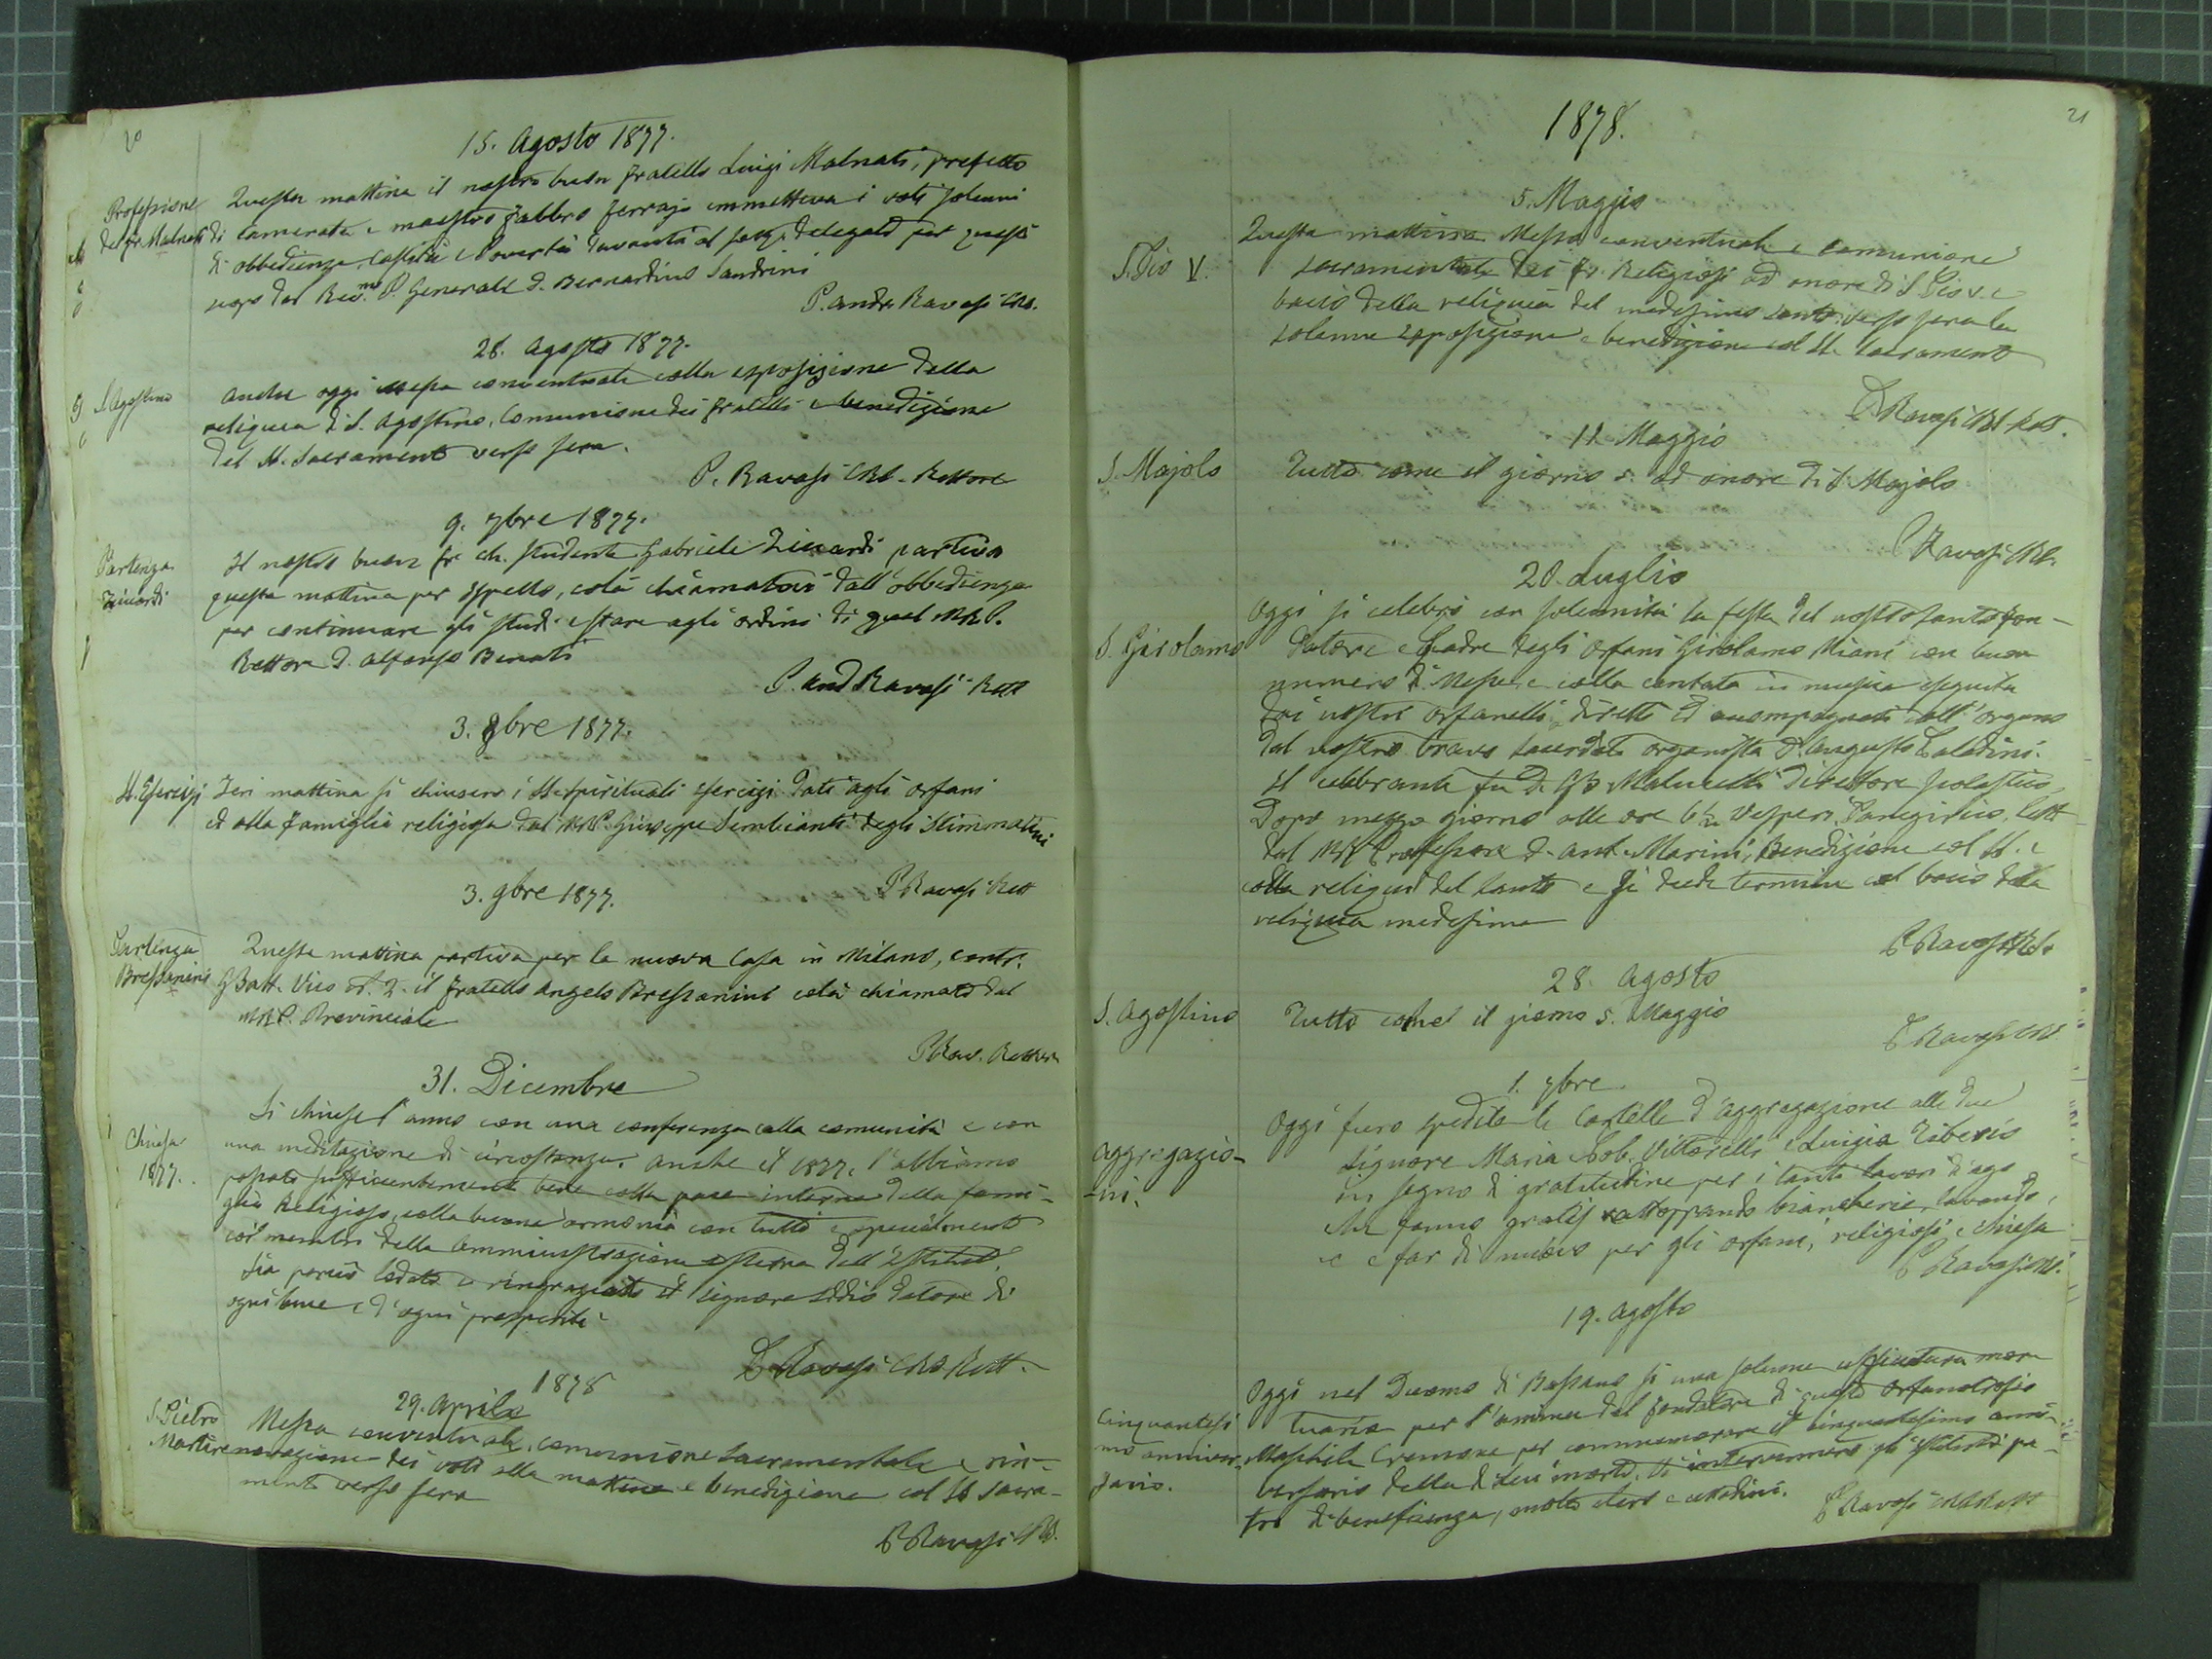 20
15. Agosto 1877.
Professione
del fr. Malnati
Questa mattina il nostro buon fratello Luigi Malnati, prefetto
di camerata e maestro fabbro ferrajo emmetteva i voti solenni
di obbedienza, castità e Povertà davanti al sottoº delegato per questo
uopo dal Rev.mo P. Generale D. Bernardino Sandrini
P. Andr. Ravasi CRS.
28. Agosto 1877.
S. Agostino
Anche oggi messa conventuale colla esposizione della
reliquia di S. Agostino, Comunione dei fratelli e benedizione
del SS. Sacramento verso sera.
P. Ravasi CRS. Rettore
9. 7bre 1877.
Partenza
Zicardi
Il nostro buon fr. ch. studente Gabriele Zicardi partiva
questa mattina per Spello, colà chiamatovi dall'obbedienza
per continuare gli studi e stare agli ordini di quel MRP.
Rettore D. Alfonso Benati
P. And Ravasi Rett
3. 8bre 1877.
SS. Esercizj
Ieri mattina si chiusero i SS. spirituali esercizi dati agli orfani
ed alla famiglia religiosa dal MRP. Giuseppe Sembianti degli Stimmatini
P Ravasi Rett
3. 9bre 1877.
Partenza
Bressanini
Questa mattina partiva per la nuova Casa in Milano, contr.
G Batt. Vico N. 2. il fratello Angelo Bressanini colà chiamato dal
MRP. Provinciale
P Rav. Rettore
31. Dicembre
Chiusa
1877.
Si chiuse l'anno con una conferenza colla comunità e con
una meditazione di circostanza. Anche il 1877. l'abbiamo
passato sufficientemente bene colla pace interna della fami-
glia Religiosa, colla buona armonia con tutti e specialmente
coi membri della Amministrazione esterna dell'Istituto.
Sia perciò lodato e ringraziato il Signore Iddio datore di
ogni bene e d'ogni prosperità
P. Ravasi CRS. Rett.
1878
29. Aprile
S. Pietro
Martire
Messa conventuale, comunione sacramentale e rin-
novazione dei voti alla mattina e benedizione col SS Sacra-
mento verso sera
P Ravasi CRS.
21
1878.
5. Maggio
S. Pio V.
Questa mattina Messa conventuale e comunione
sacramentale dei fr. Religiosi ad onore di S. Pio V. e
bacio della reliquia del medesimo santo. Verso sera la
solenne esposizione e benedizione col SS. Sacramento
P. Ravasi CRS Rett.
11. Maggio
S. Majolo
Tutto come il giorno 5. ad onore di S. Majolo
P Ravasi CRS.
20. Luglio
S. Girolamo
Oggi si celebrò con solennità la festa del nostro santo fon-
datore e Padre degli orfani Girolamo Miani con buon
numero di Messe e colla cantata in musica eseguita
dai nostri orfanelli diretti ed accompagnati coll'organo
dal nostro bravo sacerdote organista D. Augusto
Il celebrante fu D. GB Malucelli Direttore scolastico
Dopo mezzo giorno alle ore 6 1/2 Vesperi, Panegirico, lett
dal MR Professore D. Ant. Marini, Benedizione col SS. e
colla reliquia del Santo e si diede termine col bacio della
reliquia medesima
P Ravasi CRS.
28. Agosto
S. Agostino
Tutto come il giorno 5. Maggio
P Ravasi CRS
1. 7bre.
Aggregazio-
-ni.
Oggi furo spedite le cartelle d'aggregazione alle due
signore Maria Nob. Vittorelli e Luigia Tiberio
in segno di gratitudine per i tanti lavori d'ago
che fanno gratis rattoppando biancherie, lavando,
e e far di nuovo per gli orfani, religiosi, e chiesa
P Ravasi CRS.
19. Agosto
Cinquantesi
mo anniver-
sario.
Oggi nel Duomo di Bassano si una solenne ufficiatura mor
tuaria per l'anima del fondatore di questo Orfanotrofio
Cremona per commemorare il cinquantesimo anni-
versario della di lui morte. Vi intervennero gli istituti pa-
tri di beneficenza, molto clero e cittadini.
P Ravasi CRS Rett